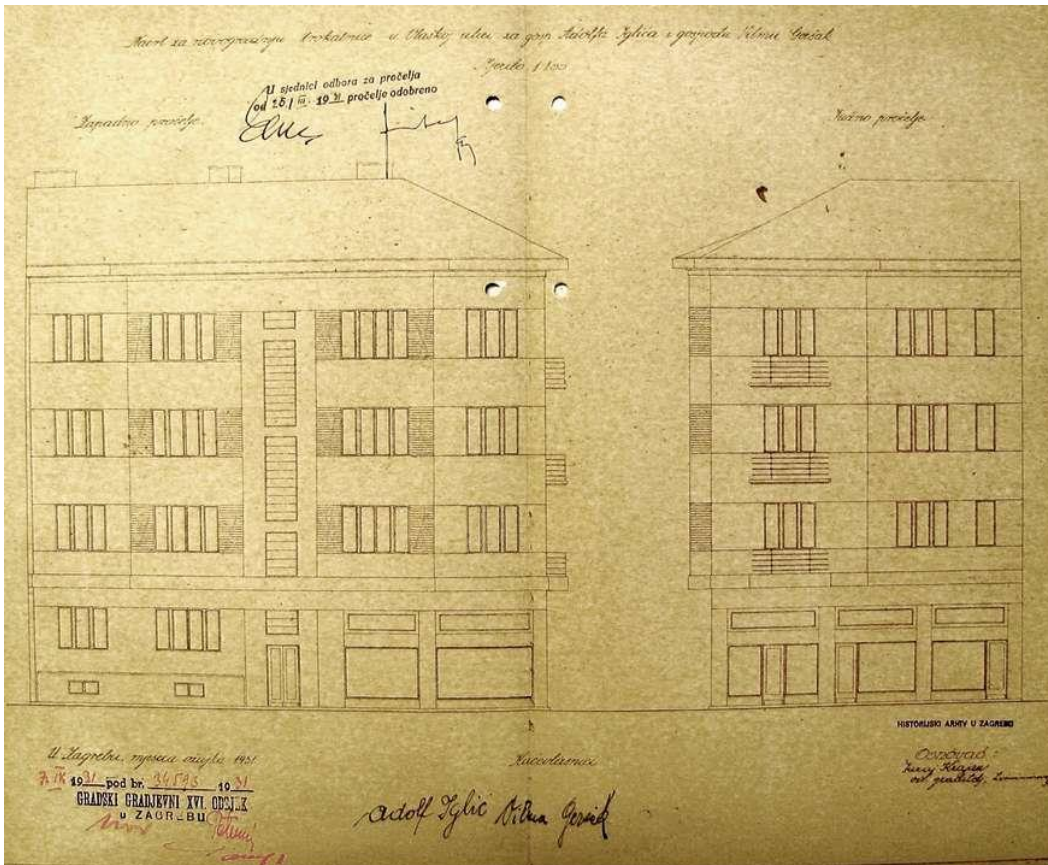 Nacrt za novogradnju trokatnice u Vlaškoj ulici za gosp. Adolfa Iglića i gospodju Vilmu Geršak
Mjerilo 1:100
U sjednici odbora za pročelja
od 1931 pročelje odobreno
Zapadno pročelje.
Južno pročelje
HISTORIJSKI ARHIV U ZAGREBU
U Zagrebu, mjeseca 1931
Osnovao:
Juraj
ovl. graditelj,
7. IX 1931 pod br. 1931
GRADSKI GRADJEVNI XVI. ODSJEK
U ZAGREBU
Adolf Iglić Vilma Geršak